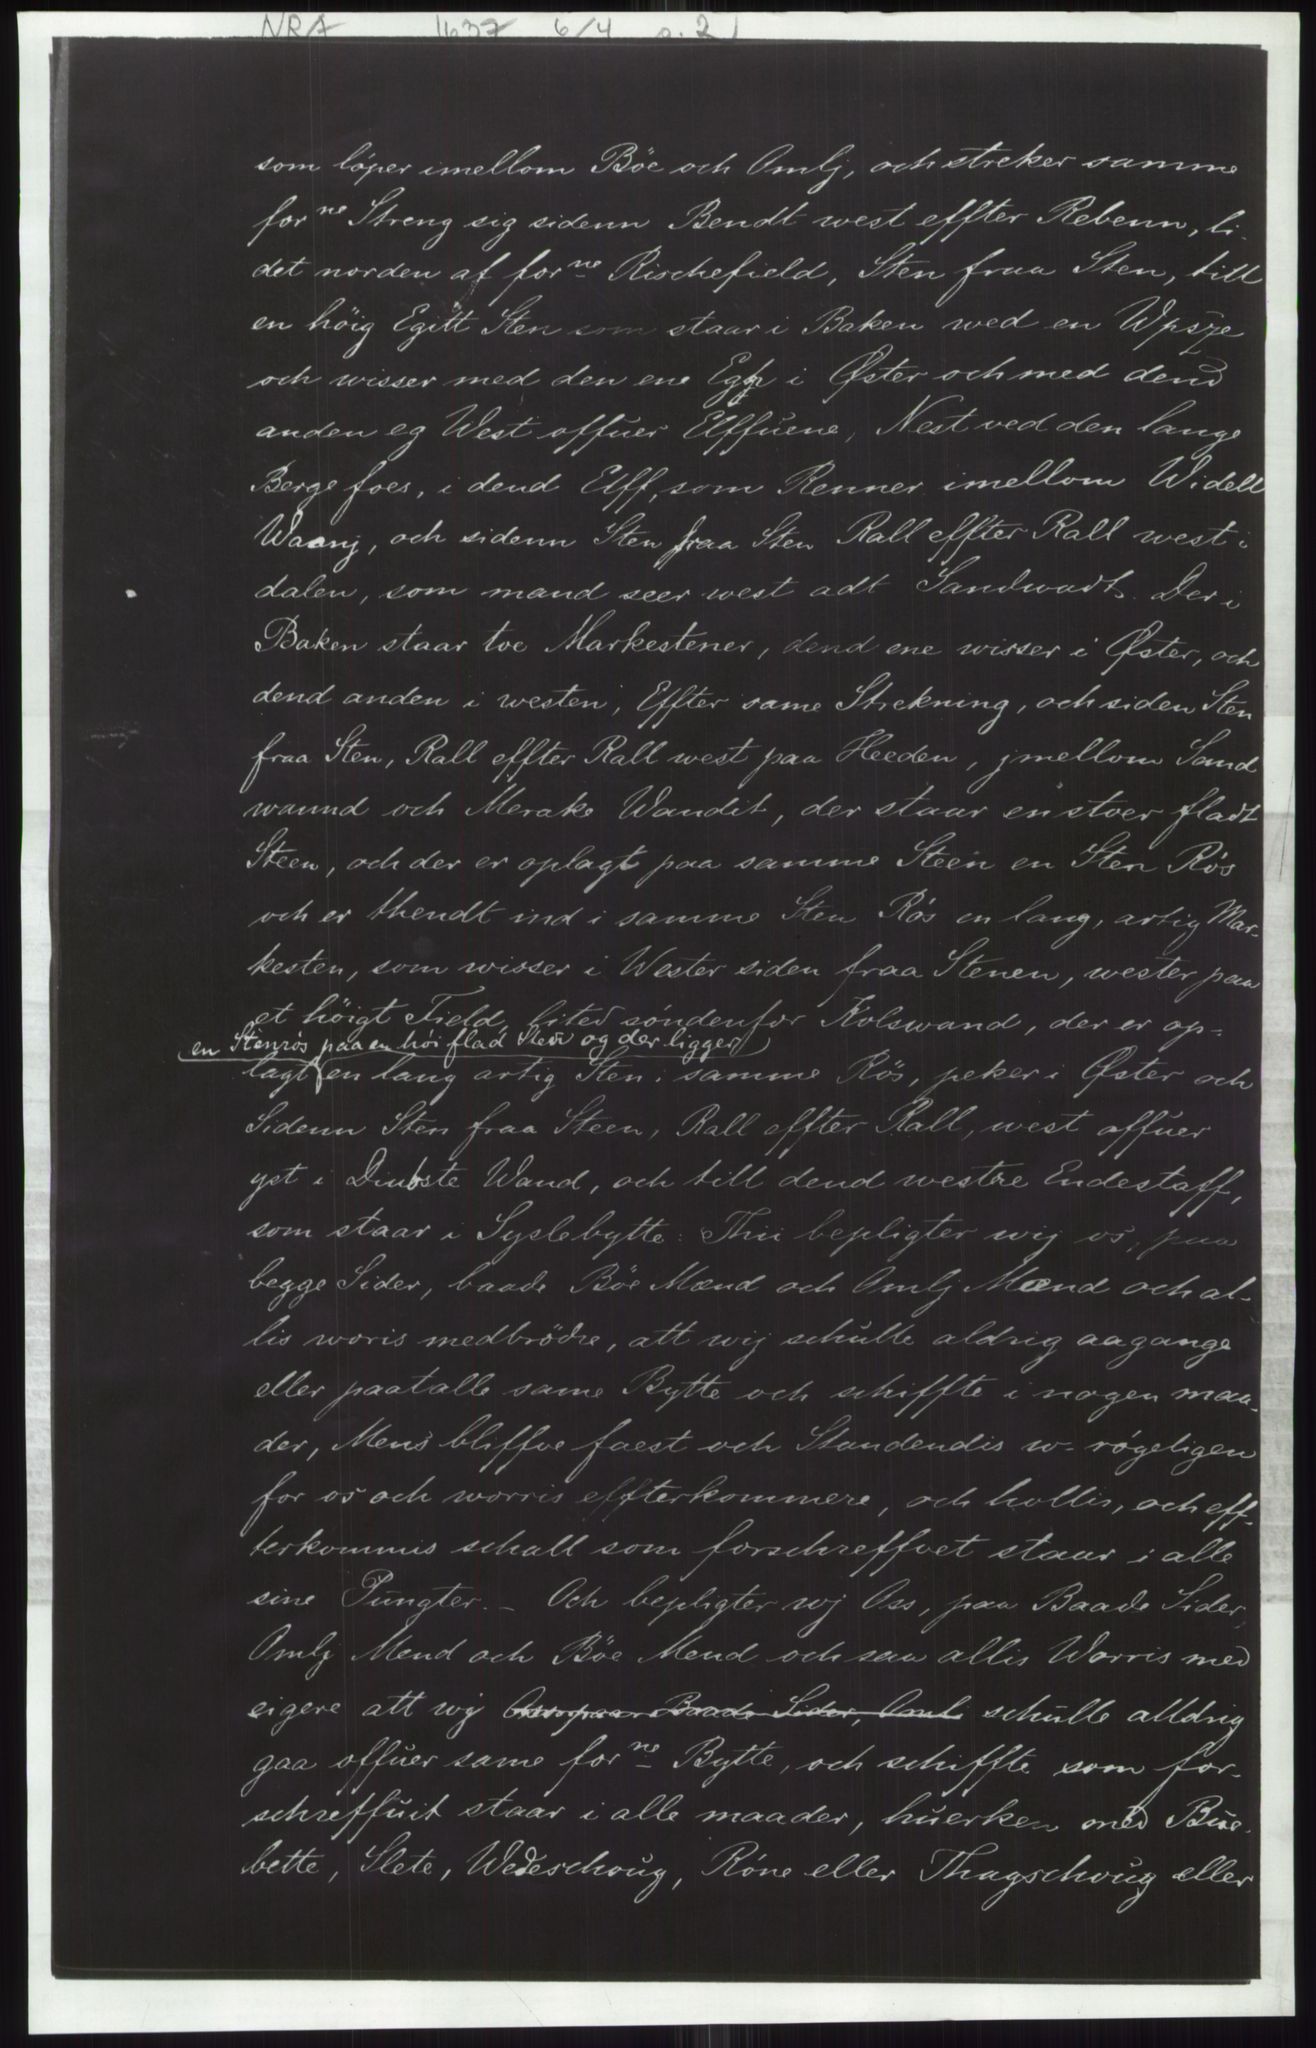 NRA 1637 6/4 s. 2
som löper imellom Böe och Omlj, och streker samme
forne Streng sig sidenn Bendt west effter Rebenn, li-
det norden af forne Rischefield, Sten fraa Sten, till
en höig Egitt Sten som staar i Baken wed en
och wisser med den ene Egg i Øster och med dend
anden eg West offuer Elffuene, Nest ved den lange
Bergefoes, i dend Elff, som Renner imellom Widell
Waanj, och sidenn Sten fraa Sten Rall effter Rall west i
dalen, som mand seer west adt Sandwadt. Der i
Baken staar toe Markestener, dend ene wisser i Øster, och
dend anden i westen, Effter same Strekning, och siden Sten
fraa Sten, Rall effter Rall west paa Heeden, jmellom Sand
waund och Merake Wandit, der staar en stoer fladt
Steen, och der er oplagt paa samme Steen en Sten Rös
och er thendt ind i samme Sten Rös en lang, artig Mar-
kesten, som wisser i Wester siden fraa Stenen, wester paa
et höigt Field lited söndenfor Kolswand, der er op-
en Stenrös paa en höi flad Sten og der ligger
lagt en lang artig Sten i samme Rös, peker i Øster och
Sidenn Sten fraa Steen, Rall effter Rall, west offuer
yst i Wand, och till dend westre Endestaff,
som staar i Syslebytte: Thii bepligter wij os, paa
begge Sider, baade Böe Mænd och Omlj Mænd och al-
lis woris medbrödre, att wij schulle aldrig aagange
eller paatalle same Bytte och schiffte i nogen maa-
der, Mens bliffve faest och Standendis w-rögeligen
for os och worris effterkommere, och hollis, och eff-
terkommis schall som forschreffvet staar i alle
sine Pungter. - Och bepligter wj Oss, paa Baade Sider,
Omlj Mend och Böe Mend och saa allis Worris med
eigere att wij Oss paa Baade Sider, Oml schulle alldrig
gaa offuer same forne Bytte, och schiffte som for-
schreffuit staar i alle maader, huerken med Bue-
bette, Slete, Wedeschoug, Röne eller Thagschoug eller